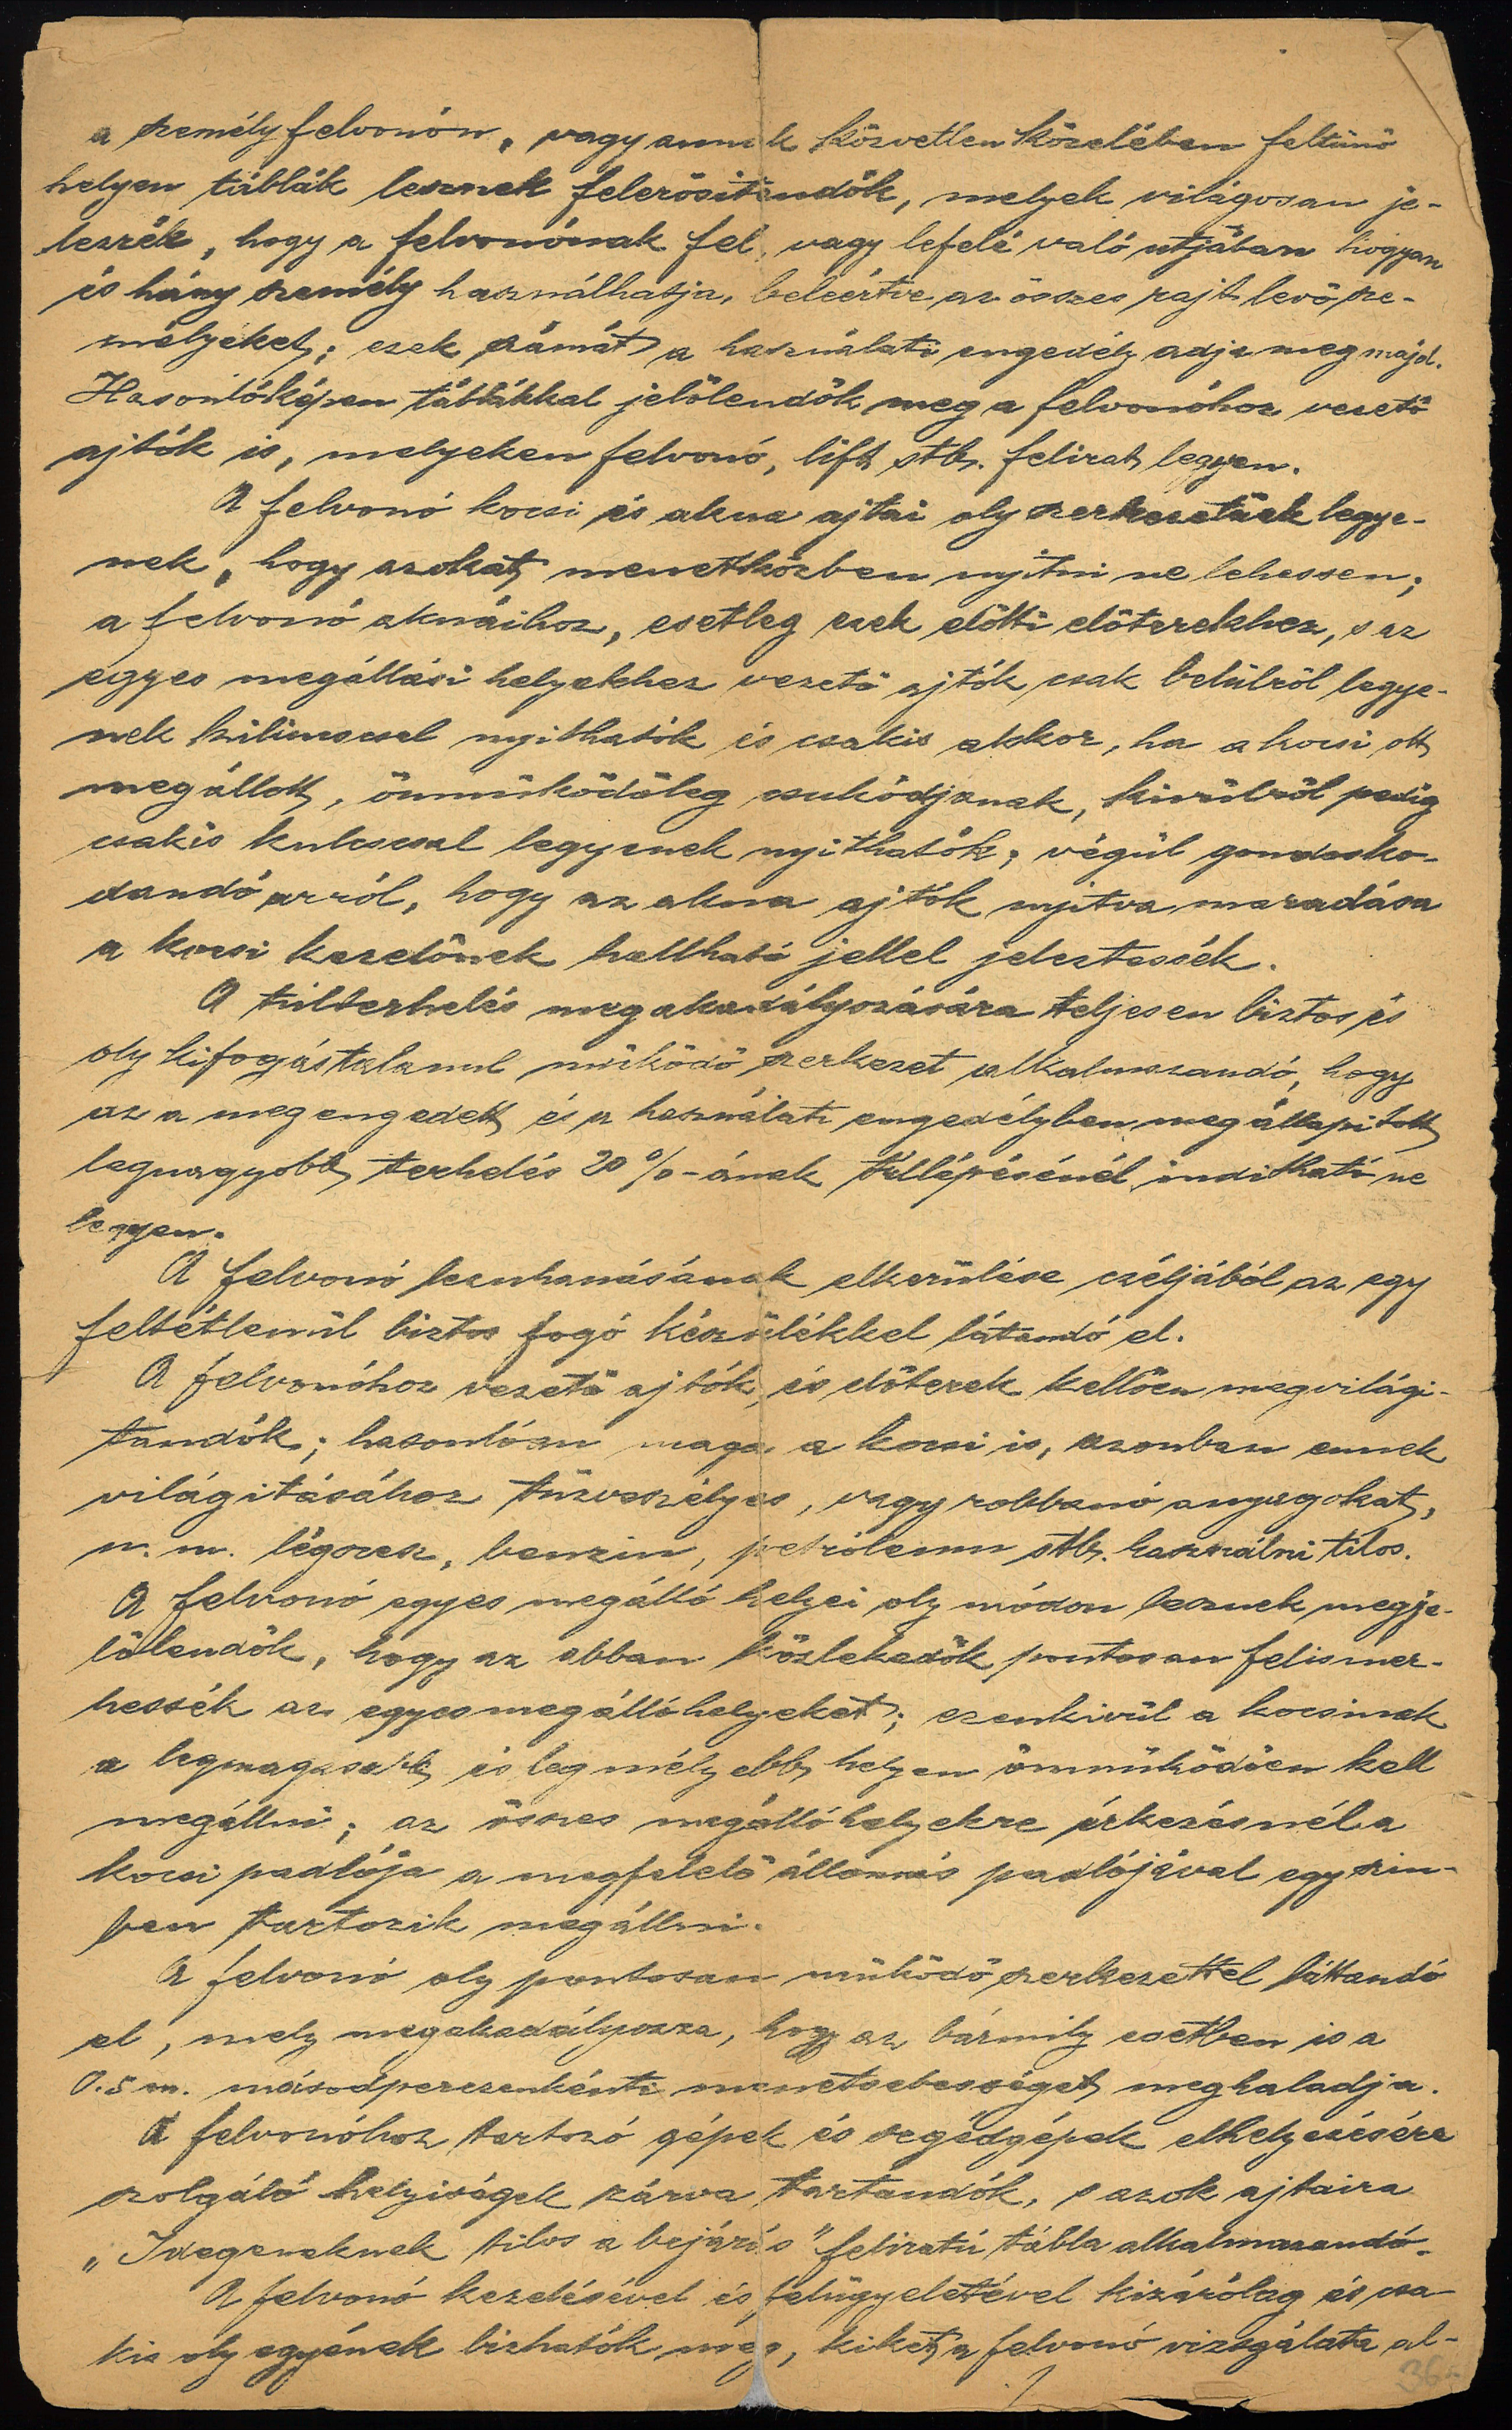 a személyfelvonón, vagy annak közvetlen közelében feltünö
helyen táblák lesznek felerösitendök, melyek világosan je-
lezzék, hogy a felvonónak fel, vagy lefelé való utjában hogyan
és hány személy használhatja, beleértve az összes rajt levö sze-
mélyeket; ezek számát a használati engedély adja meg majd.
Hasonlóképen táblákkal jelölendök meg a felvonóhoz vezetö
ajtók is, melyeken felvonó, lift stb. felirat legyen.
A felvonó kocsi és akna ajtai oly szerkezetüek legye-
nek, hogy azokat menetközben nyitni ne lehessen;
a felvonó aknáihoz, esetleg ezek elötti elöterekhez, s az
egyes megállási helyekhez vezetö ajtók csak belülröl legye-
nek kilincscsel nyithatók és csakis akkor, ha a kocsi ott
megállott, önmüködöleg csukódjanak, kivülröl pedig
csakis kulcscsal legyenek nyithatók; végül gondosko-
dandó arról, hogy az akna ajtók nyitva maradása
a kocsi kezelönek hallható jellel jeleztessék.
A túlterhelés megakadályozására teljesen biztos és
oly kifogástalanul müködö szerkezet alkalmazandó, hogy
az a megengedett és a használati engedélyben megállapitott
legnagyobb terhelés 20%-ának túllépésénél inditható ne
legyen.
A felvonó lezuhanásának elkerülése czéljából az egy
feltétlenül biztos fogó készülékkel látandó el.
A felvonóhoz vezetö ajtók, és elöterek kellöen megvilági-
tandók; hasonlóan maga a kocsi is, azonban ennek
világitásához tüzveszélyes, vagy robbanó anyagokat,
u. m. légszesz, benzin, petróleum stb. használni tilos.
A felvonó egyes megálló helyei oly módon lesznek megje-
lölendök, hogy az abban közlekedök pontosan felismer-
hessék az egyes megálló helyeket; ezenkivül a kocsinak
a legmagasabb és legmélyebb helyen önmüködöen kell
megállni; az összes megálló helyekre érkezésnél a
kocsi padlója a megfelelö állomás padlójával egy szin-
ben tartozik megállni.
A felvonó oly pontosan müködö szerkezettel láttandó
el, mely megakadályozza, hogy az bármily esetben is a
0.5 m. másodperczenkénti menetsebességet meghaladja.
A felvonóhoz tartozó gépek és segédgépek elhelyezésére
szolgáló helyiségek zárva tartandók, s azok ajtaira
„Idegeneknek tilos a bejárás" feliratú tábla alkalmazandó.
A felvonó kezelésével és felügyeletével kizárólag és csa-
kis oly egyének bizhatók meg, kiket a felvonó vizsgálata al-
./.
36